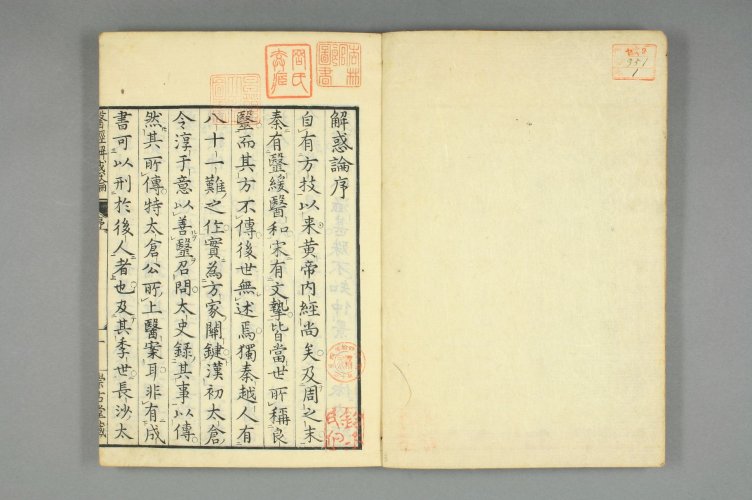 解惑論序
自有方技以来黄帝内經尚矣及周之末
秦有醫緩醫和宋有文摯皆當世所稱良
醫而其方不傳後世無述焉獨秦越人有
八十一難之作實為方家關鍵漢初太倉
令淳于意以善醫召問太史錄其事以傳
然其所傳特太倉公所上醫案耳非有成
書可以刑於後人者也及其季世長沙太
醫經解惑論
序
一
崇古堂藏
951
1